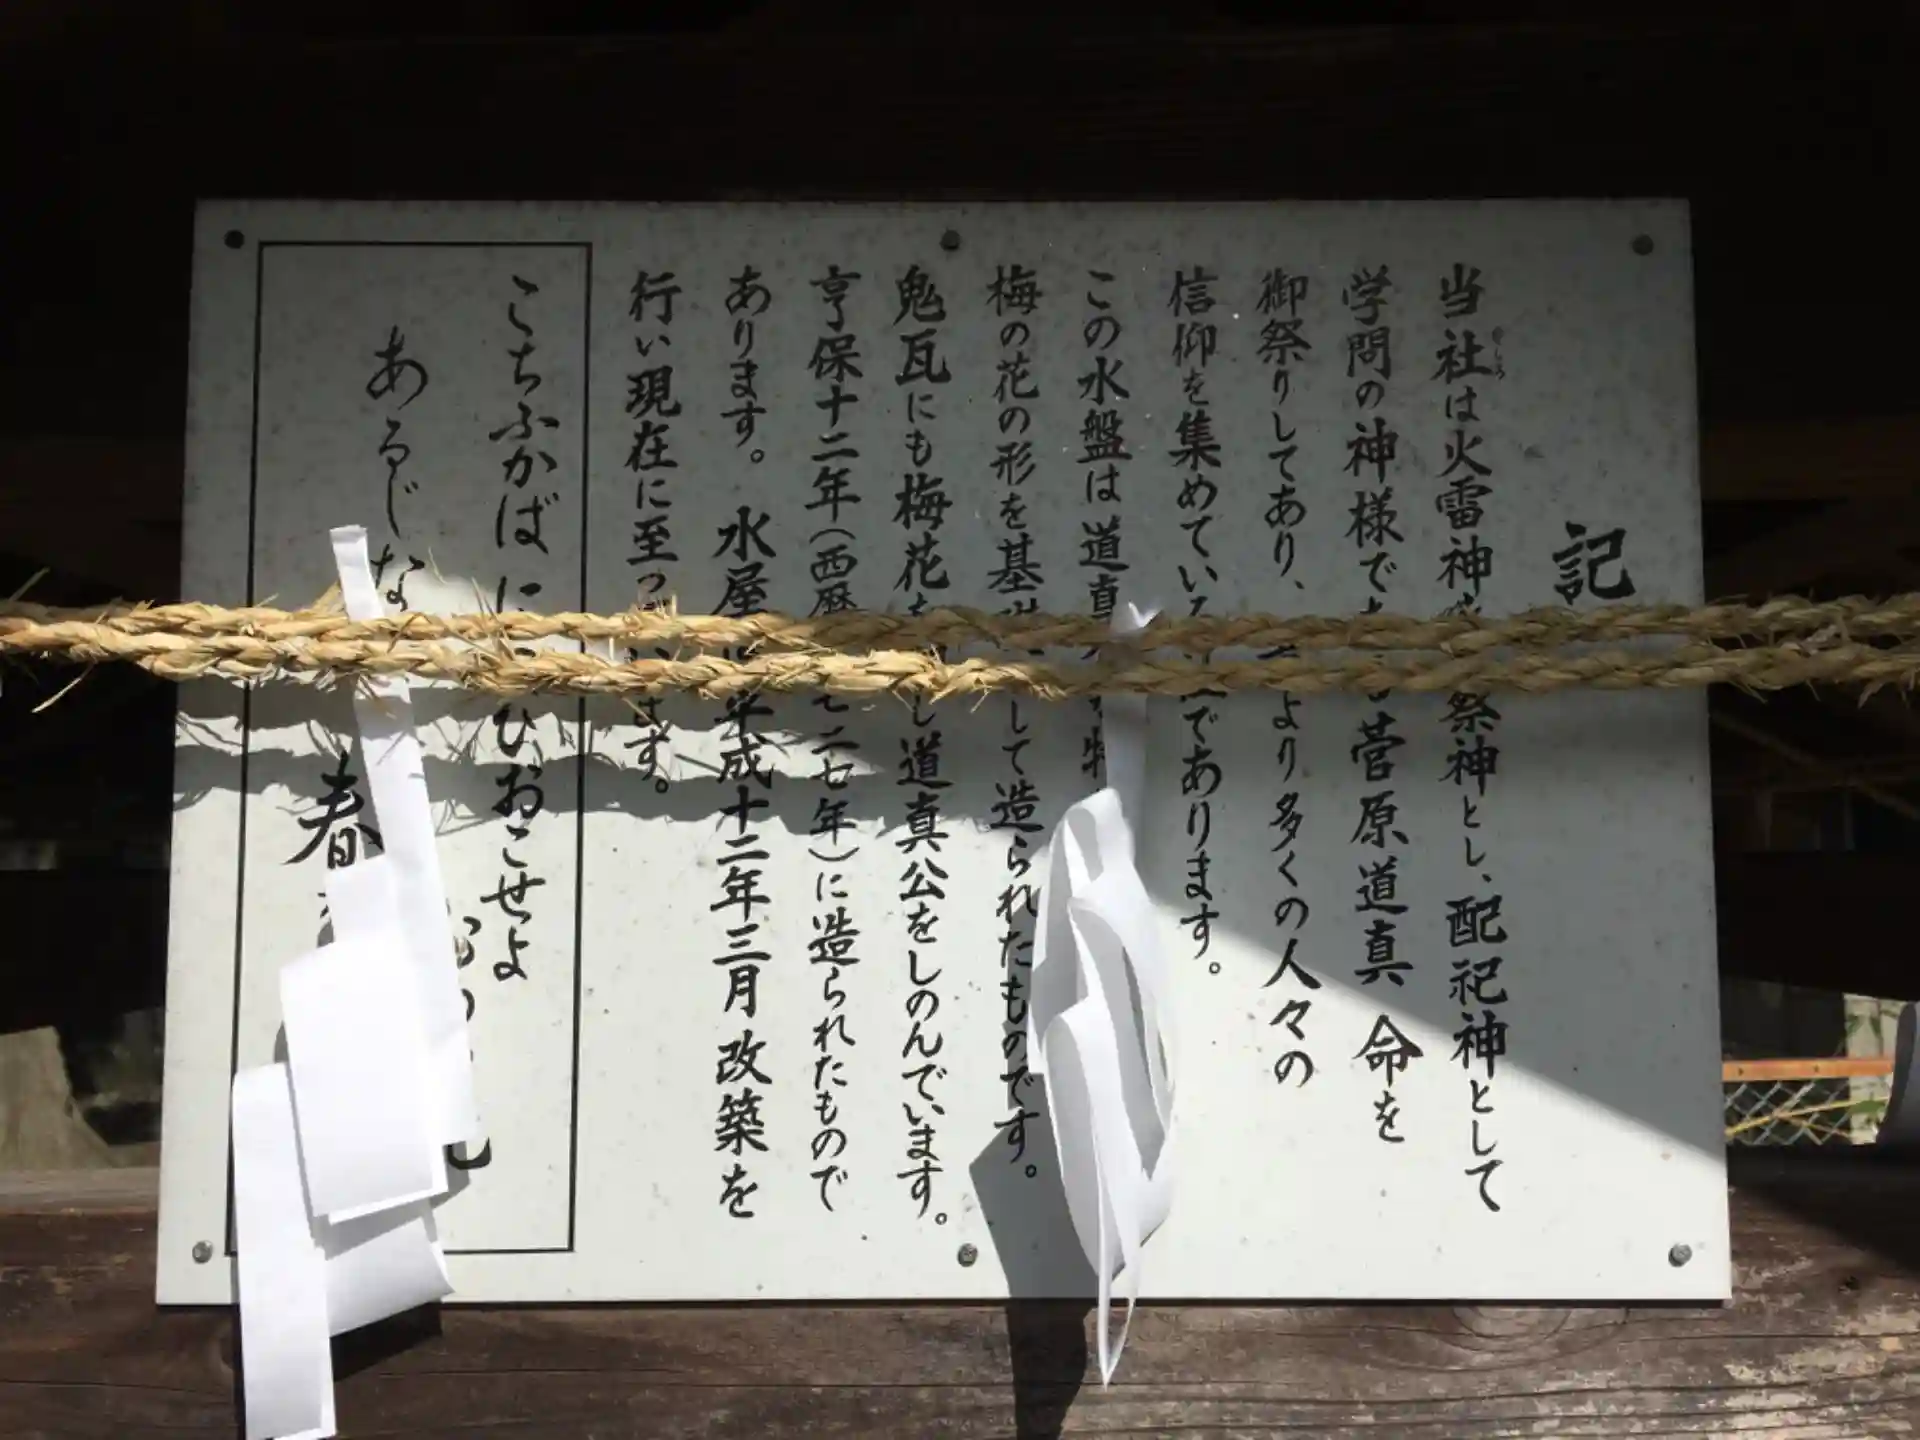 記
当社は火雷神 祭神とし、配祀神として
やしろ
学問の神様で 菅原道真 命を
御祭りしてあり、 より多くの人々の
信仰を集めている であります。
この水盤は道真
梅の花の形を基 して造られたものです。
鬼瓦にも梅花を し道真公をしのんでいます。
享保十二年(西暦 二七年)に造られたもので
あります。 水屋 平成十二年三月改築を
行い現在に至って います。
こちふかば に ひおこせよ
あるじな
春